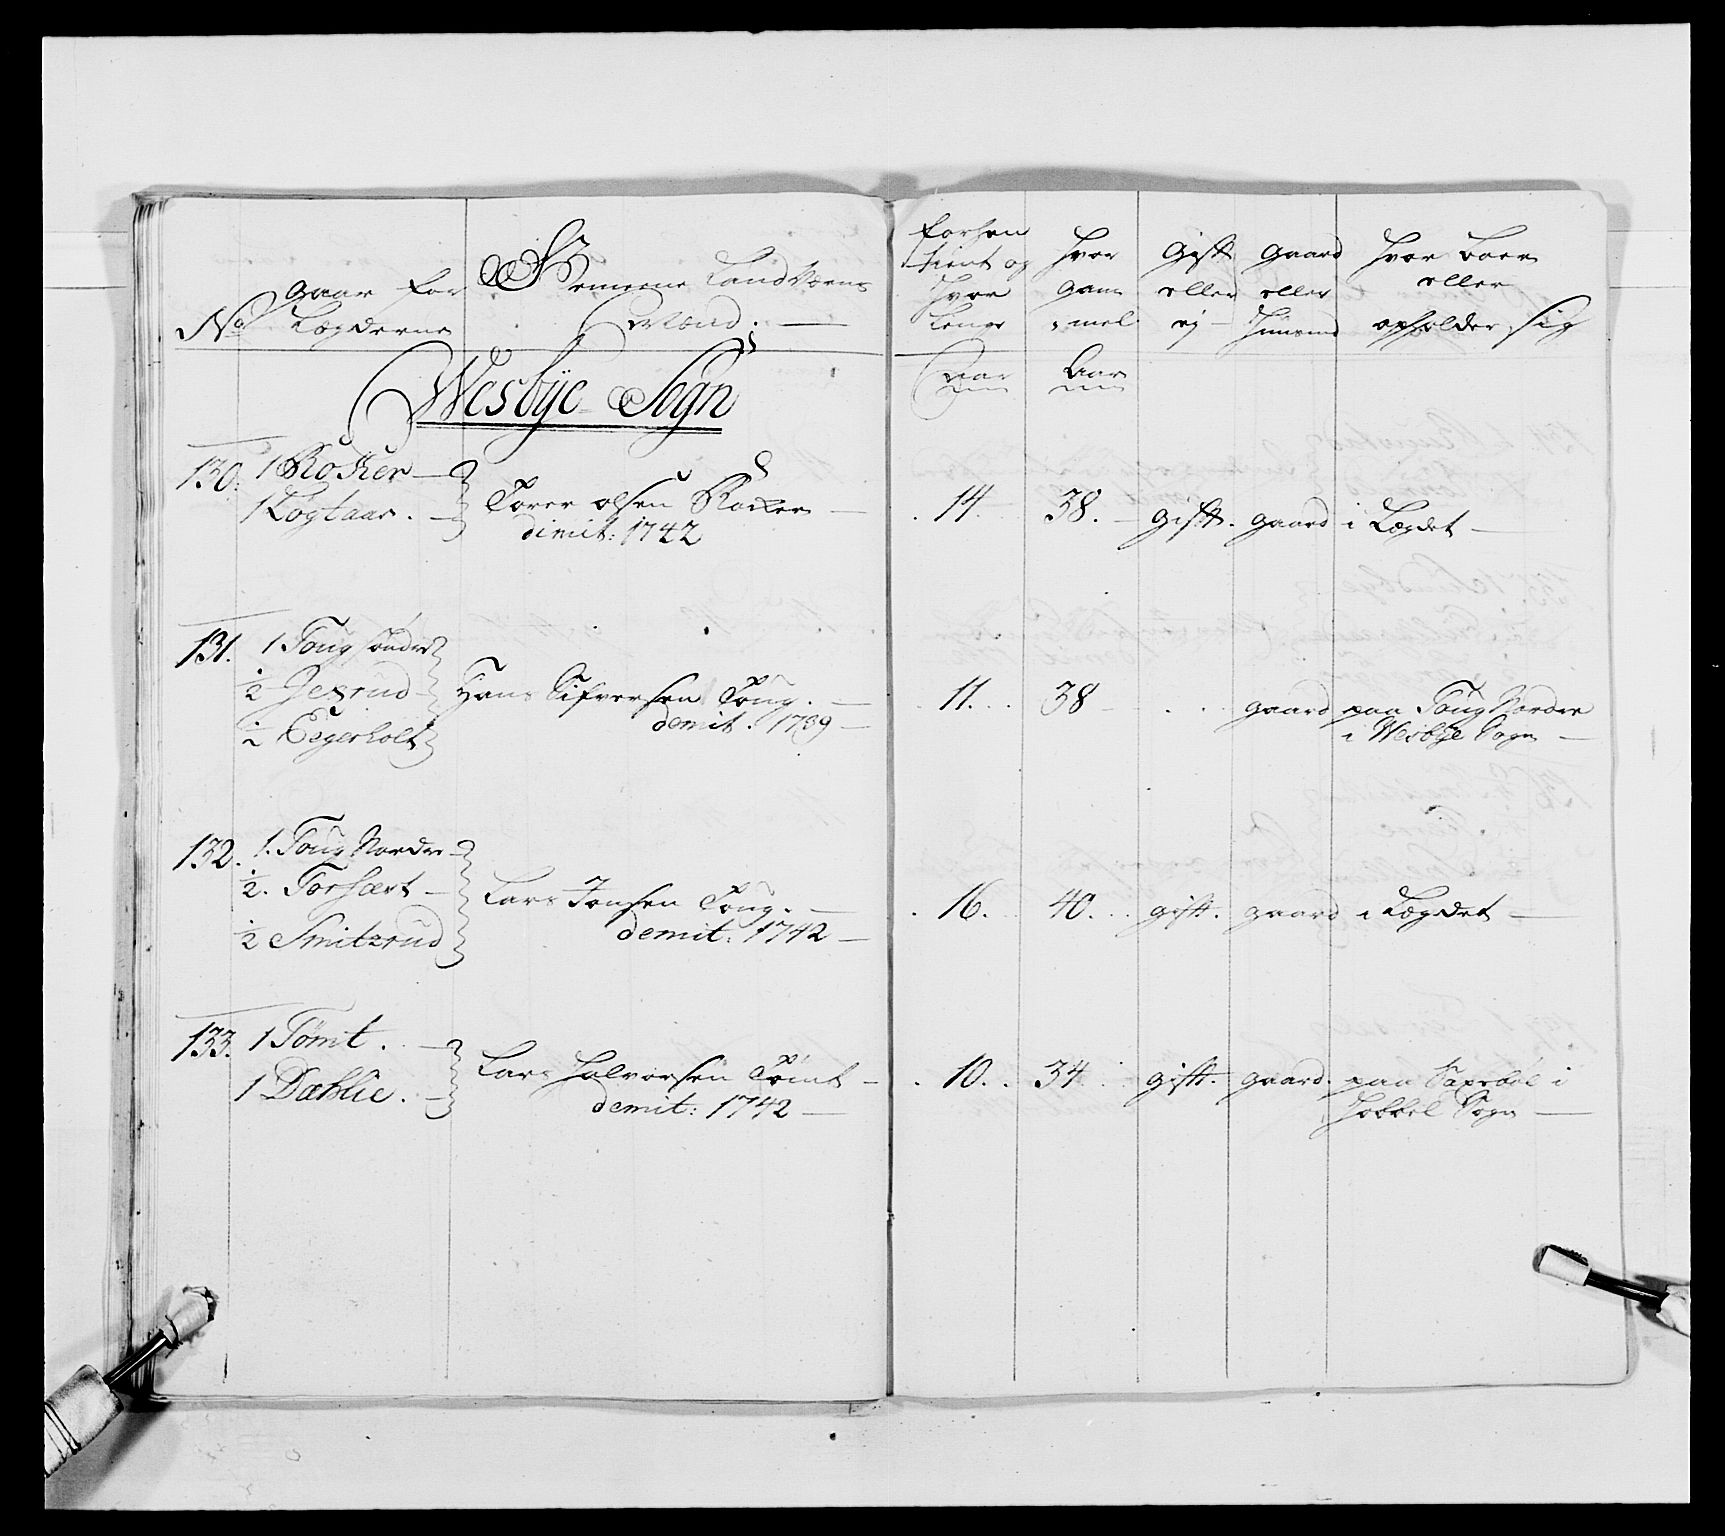 No
Gaar for
Lægderne
Gemeene Landværns
Mænd.
forhen
tient og
hvor
Lenge
hvor
gam
mel
Gift
eller
ej
gaard
eller
Huusmd
hvor boer
eller
opholder sig
Wesbÿe Sogn
Aar
Aar
130. 1 Kokker
1 Logtaar.
Torer olsen Kokker
dimit: 1742
14. 38. gift. gaard i Lægdet
131. 1 Toug søndre
1/2 Jexrud
1/2 Eegerholt
Hans Sifversen Toug.
demit. 1739
11. 38 gaard paa Toug Nordre
i Wesbÿe Sogn
132. 1. Toug Nordre
1/2. Torsært
1/2 Smitzrud
Lars Jonsen Toug.
demit: 1742
16. 40. gift. gaard i Lægdet
133. 1 Tømt.
1 Dæhlie.
Lars Halvorsen Tømt
demit: 1742
10. 34 gift. gaard. paa Saxebøl i
Hobbøl Sogn